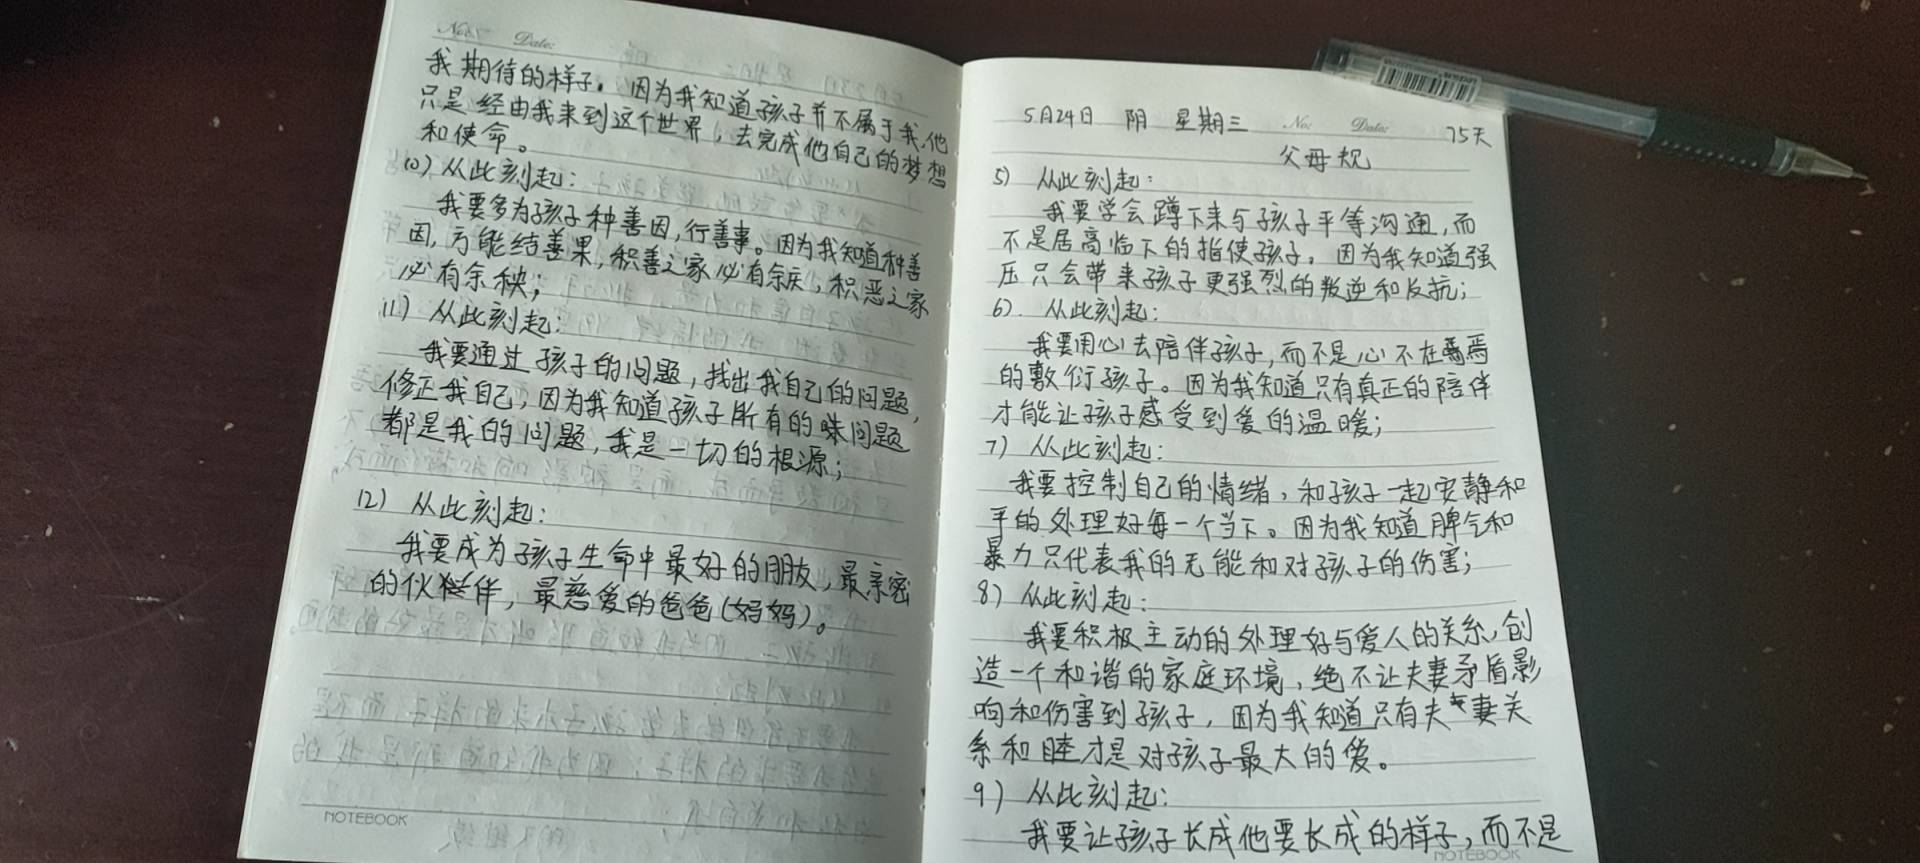 No: Date:
我期待的样子。因为我知道孩子并不属于我,他
只是经由我来到这个世界,去完成他自己的梦想
和使命。
10) 从此刻起:
我要多为孩子种善因,行善事。因为我知道种善
因,方能结善果,积善之家必有余庆,积恶之家
必有余秧;
11) 从此刻起:
我要通过孩子的问题,找出我自己的问题,
修正我自己,因为我知道孩子所有的问题
都是我的问题,我是一切的根源;
12) 从此刻起:
我要成为孩子生命中最好的朋友,最亲密
的伙伴,最慈爱的爸爸(妈妈)。
NOTEBOOK
5月24日 阴 星期三 No: Date: 75天
父母规
5) 从此刻起:
我要学会蹲下来与孩子平等沟通,而
不是居高临下的指使孩子。因为我知道强
压只会带来孩子更强烈的叛逆和反抗;
6). 从此刻起:
我要用心去陪伴孩子,而不是心不在焉
的敷衍孩子。因为我知道只有真正的陪伴
才能让孩子感受到爱的温暖;
7) 从此刻起:
我要控制自己的情绪,和孩子一起安静和
平的处理好每一个当下。因为我知道脾气和
暴力只代表我的无能和对孩子的伤害;
8) 从此刻起:
我要积极主动的处理好与爱人的关系,创
造一个和谐的家庭环境,绝不让夫妻矛盾影
响和伤害到孩子,因为我知道只有夫妻关
系和睦才是对孩子最大的爱。
9) 从此刻起:
我要让孩子长成他要长成的样子,而不是
NOTEBOOK